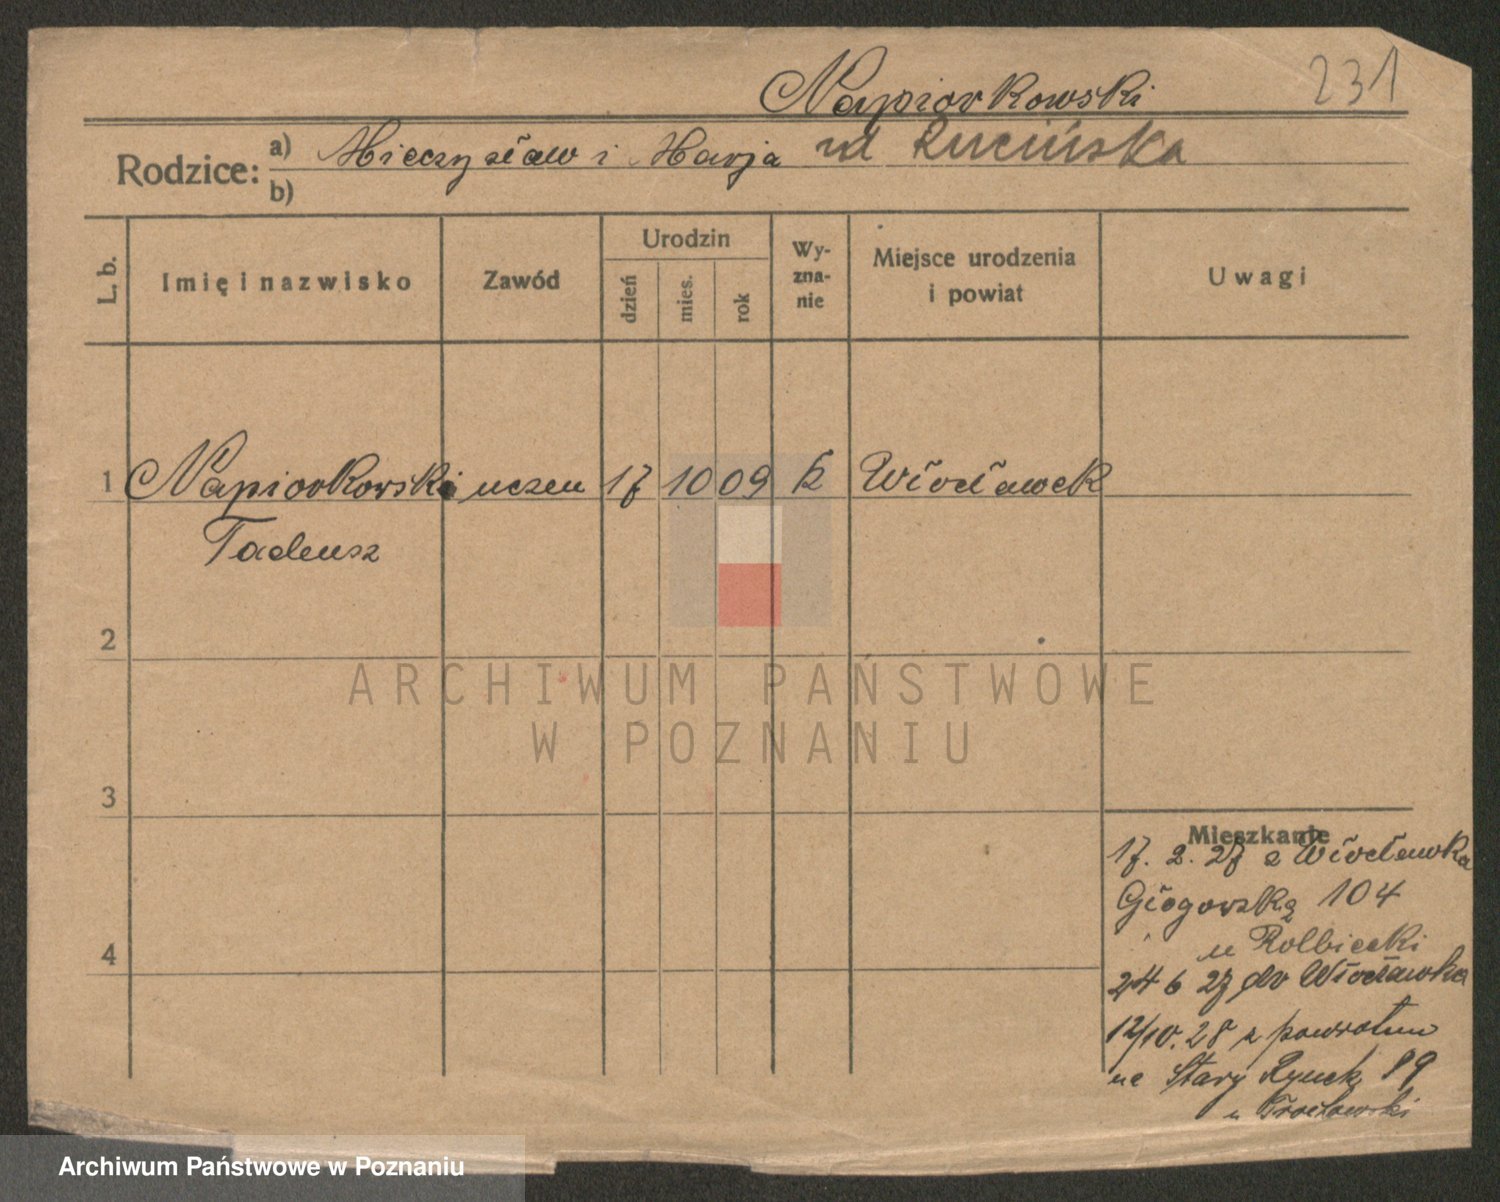 231
Napiorkowski
Rodzice: a) Mieczysław i Marja zd Rucińska
b)
L. b. Imię i nazwisko Zawód Urodzin dzień mies. rok Wy-zna-nie Miejsce urodzenia i powiat Uwagi
1 Napiorkowski uczen 17 10 09 k Włocławek
Tadeusz
2
ARCHIWUM PAŃSTWOWE
W POZNANIU
3
Mieszkanie
17. 2. 27 z Włocławka
Głogowska 104
u Kolbiecki
4
24 6 27 do Włocławka
12/10. 28 z powrotem
na Stary Rynek 89
u
Archiwum Państwowe w Poznaniu